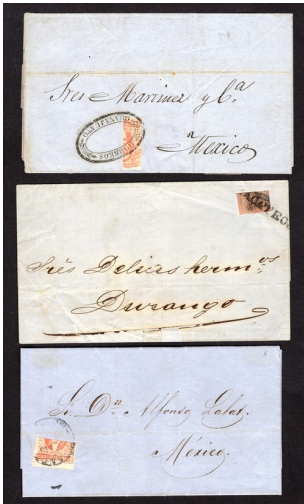 Sres Martinez y Cª
a
Mexico
CORREOS
Sres Delius hermos
Durango
Sr. Dn Alfonso Labat.
México.